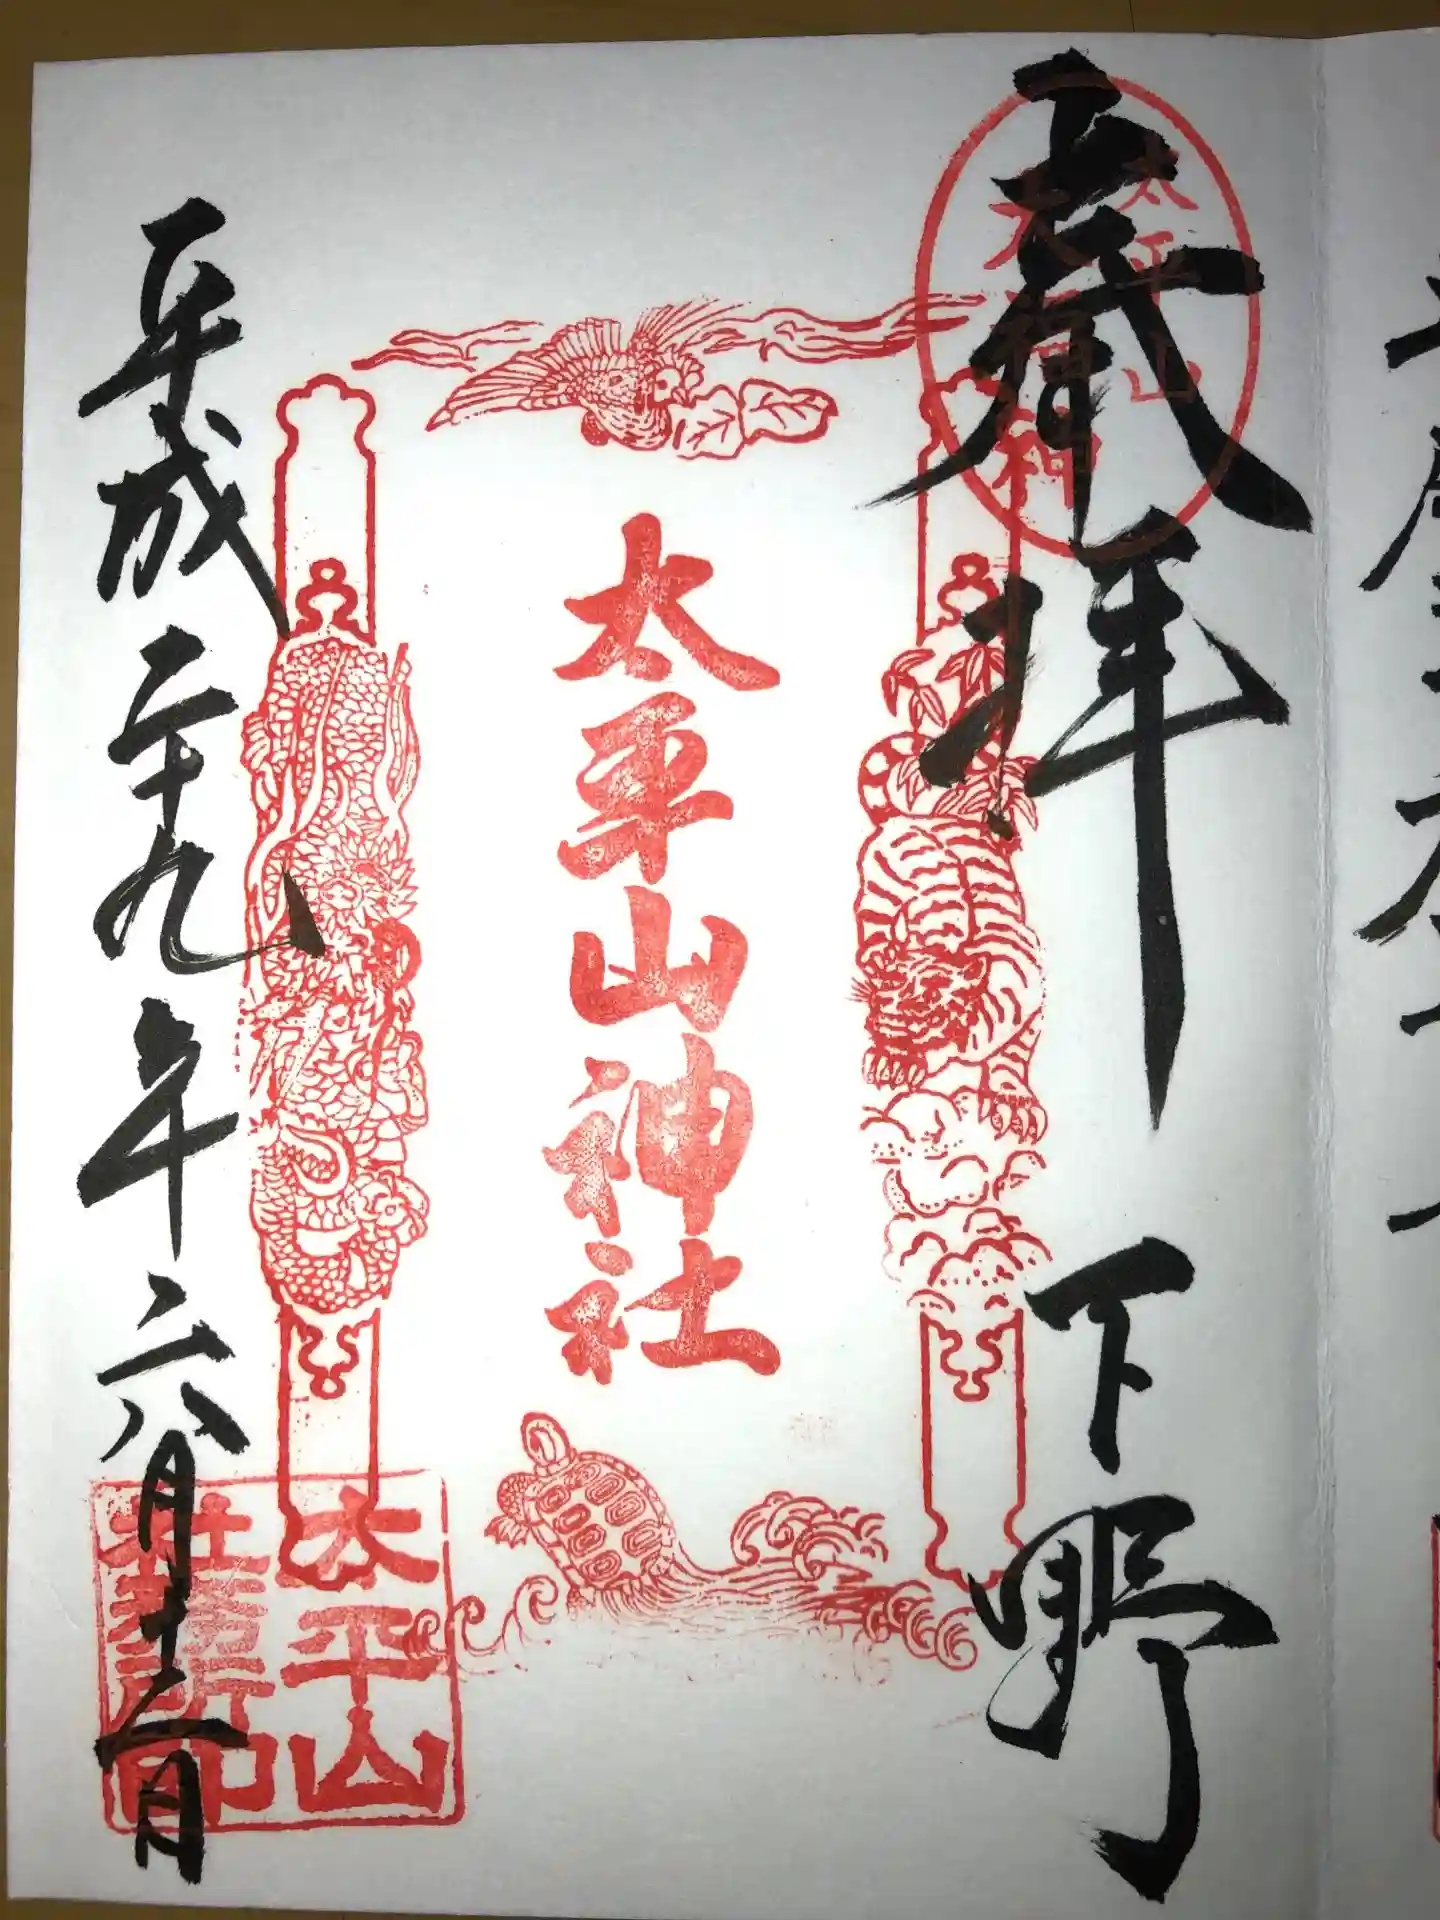 奉拝 下野
太平山
太平山神社
平成二十九年六月十二日
太平山
社務所印